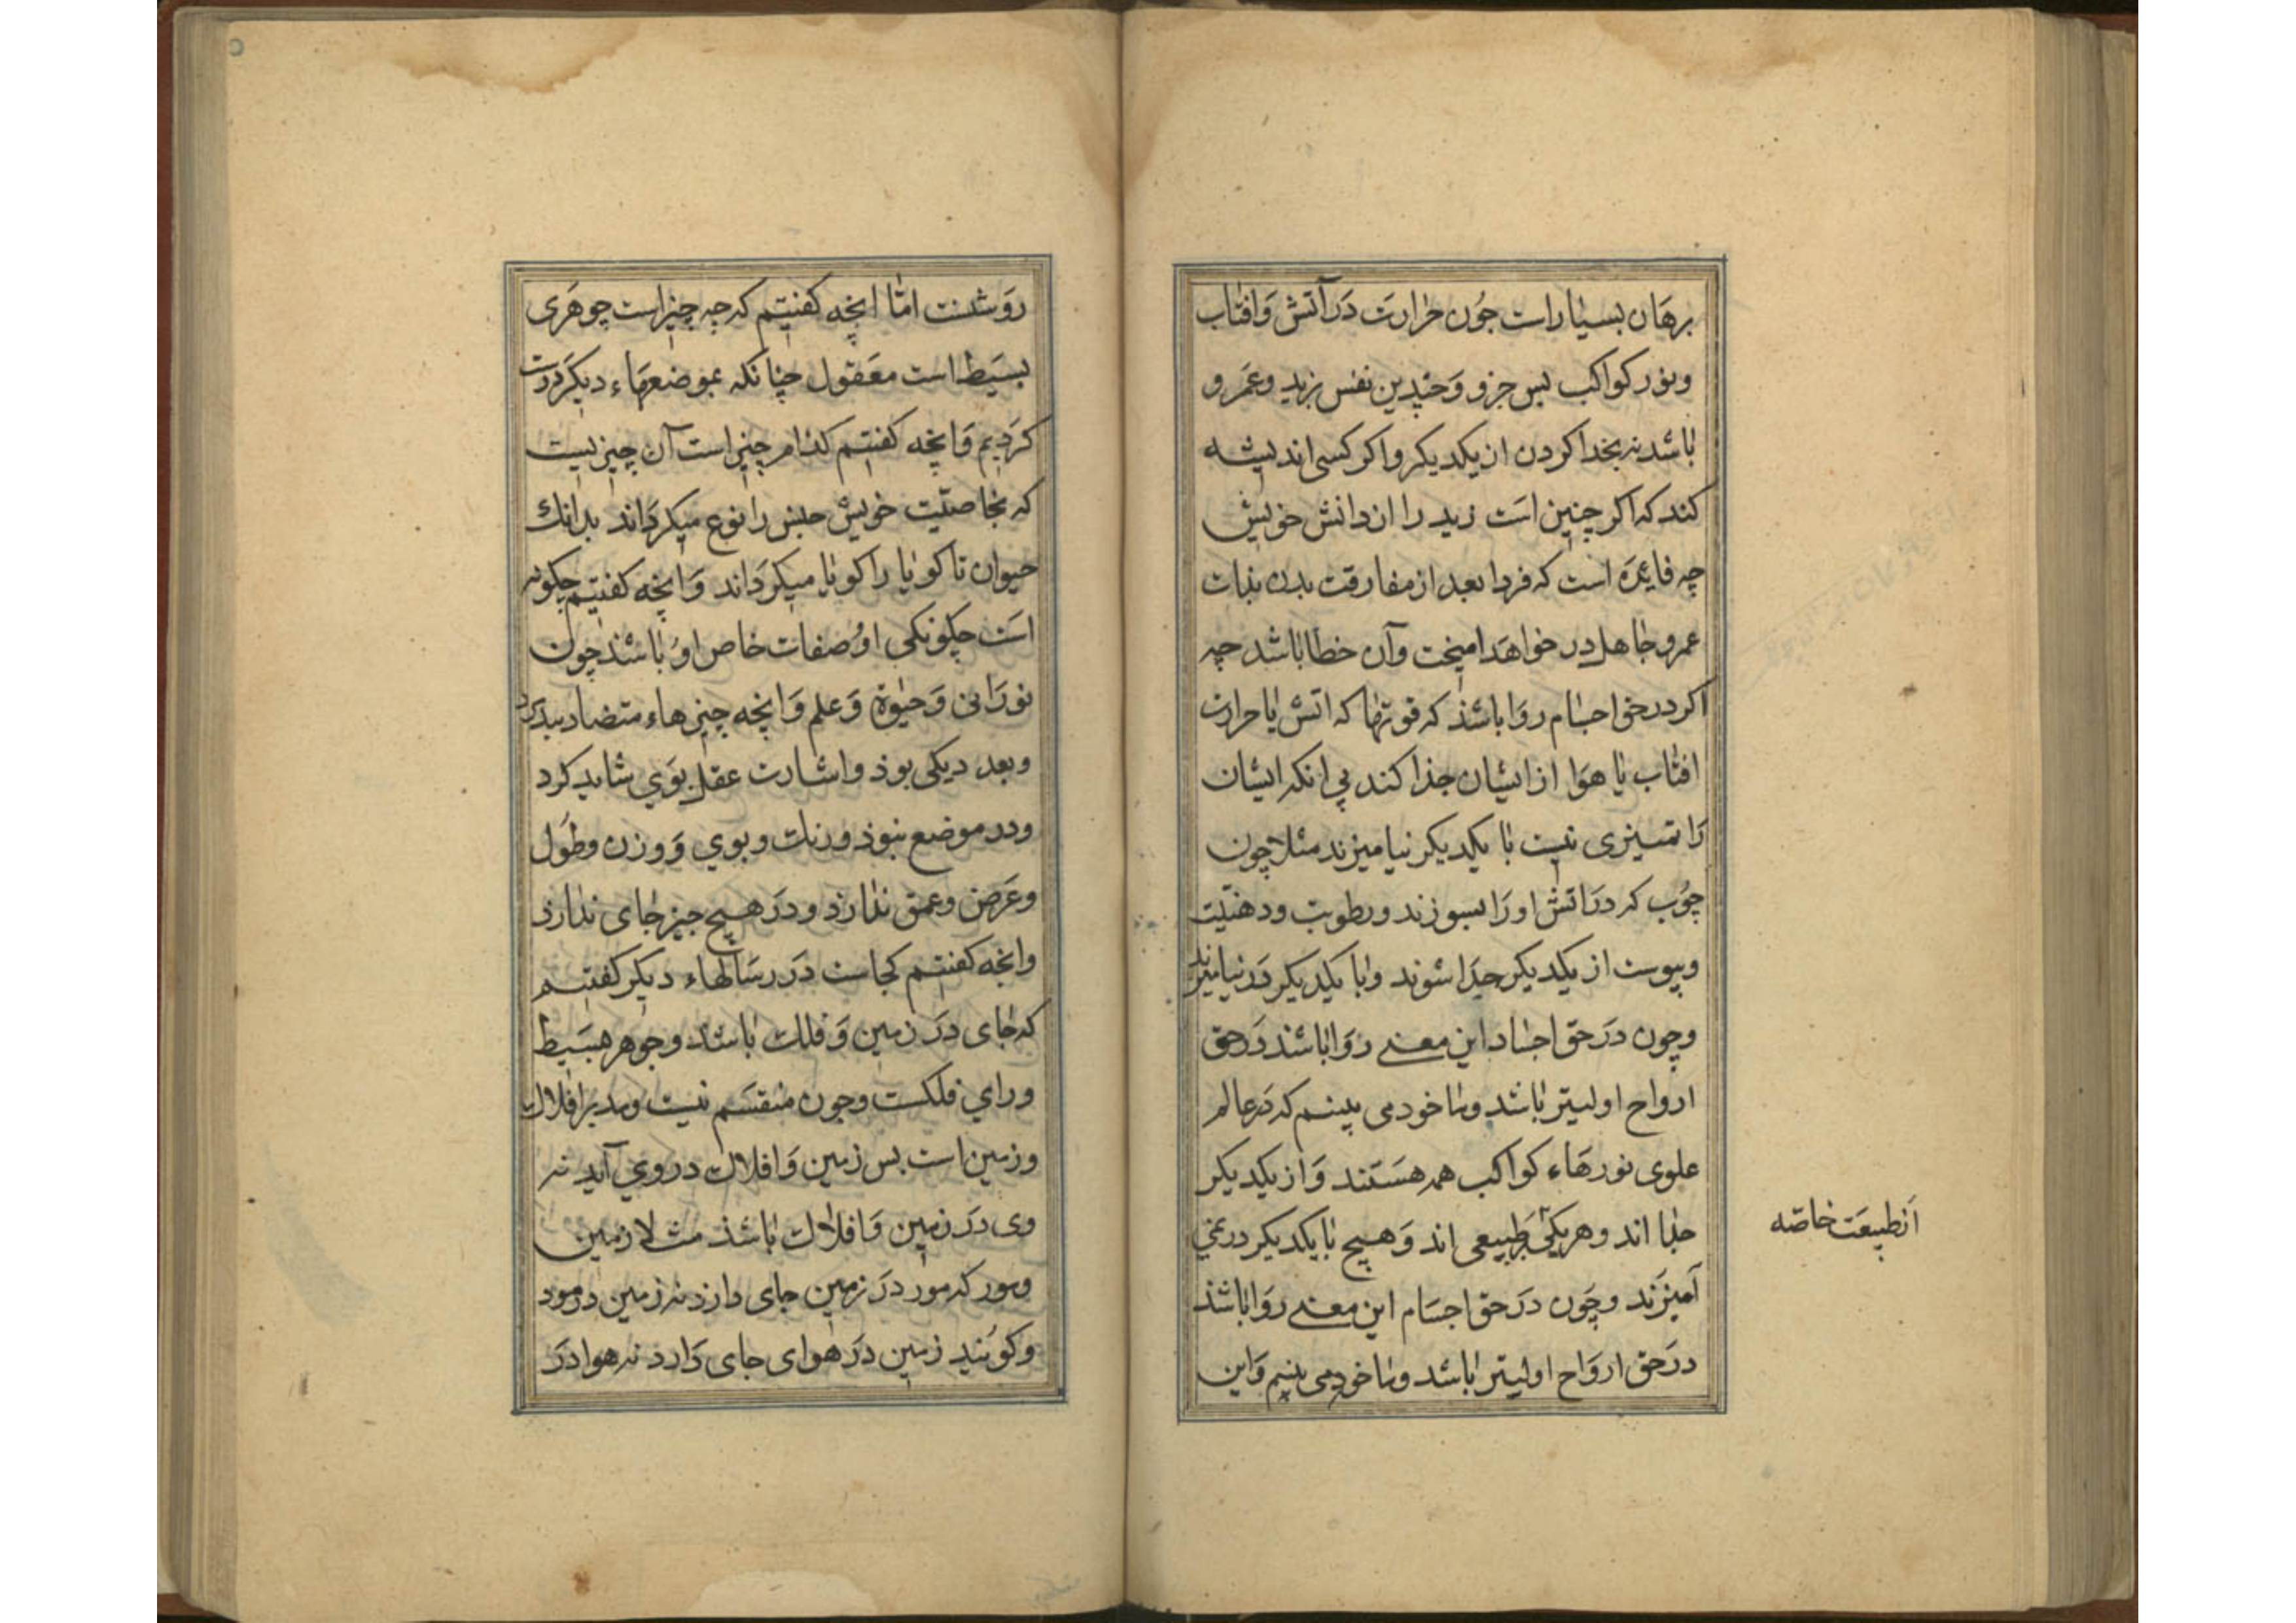 برهان بسیار است جون حرارت در آتش و افتاب
و نور کواکب بس جزو و چندین نفس بزید و عمرو
باشد نه بجدا کردن از یکدیکر و اکر کسی اندیشه
کند که اکر چنین است زید را از دانش خویش
چه فایده است که فردا بعد از مفارقت بدن بذات
عمرو جاهل در خواهد امیخت و آن خطا باشد چه
اکر در حق اجسام روا باشذ که قوتها که اتش یا حرارت
افتاب یا هوا از ایشان جذا کند بی انکه ایشان
را تمییزی نیست با یکدیکر نیامیزند مثلا چون
چوب که در اتش او را بسوزند و رطوبت و دهنیت
و یبوست از یکدیکر جدا شوند و با یکدیکر در نیامیزند
و چون در حق اجساد این معنی روا باشذ در حق
ارواح اولیتر باشد و ما خود می بینیم که در عالم
علوی نورهاء کواکب همه هستند و از یکدیکر
جدا اند و هر یکی بر طبیعی اند و هیچ با یکدیکر در نمی
آمیزند و چون در حق اجسام این معنی روا باشذ
در حق ارواح اولیتر باشد و ما خود می بینیم و این
از طبیعت خاصه
روشنست اما انچه کفتیم که چه چیز است جوهری
بسیط است معقول چنانکه بموضعهاء دیکر درست
کردیم و انچه کفتیم کذام چیز است آن چیزیست
که بخاصیت خویش جنس را نوع میکرداند بدانك
حیوان ناکویا را کویا میکرداند و انچه کفتیم چکونه
است چکونکی او صفات خاص او باشذ چون
نورانی و حیوة و علم و انچه چیزهاء متضاد بپذیرد
و بعد دیکی بوذ و اشارت عقل بوی شاید کرد
و در موضع نبوذ و رنك و بوی و وزن و طول
و عرض و عمق ندارد و در هیچ جیز جای ندارد
و انچه کفتیم کجاست در رسالهاء دیکر کفتیم
که جای در زمین و فلك باشد و جوهر بسیط
ورای فلکست و جون منقسم نیست و مدبر افلاك
و زمین است بس زمین و افلاك در وی آید نه
وی در زمین و افلاك باشذ مثلا زمین
و مور که مور در زمین جای دارد نه زمین در مور
و کویند زمین در هوای جای دارد نه هوا در